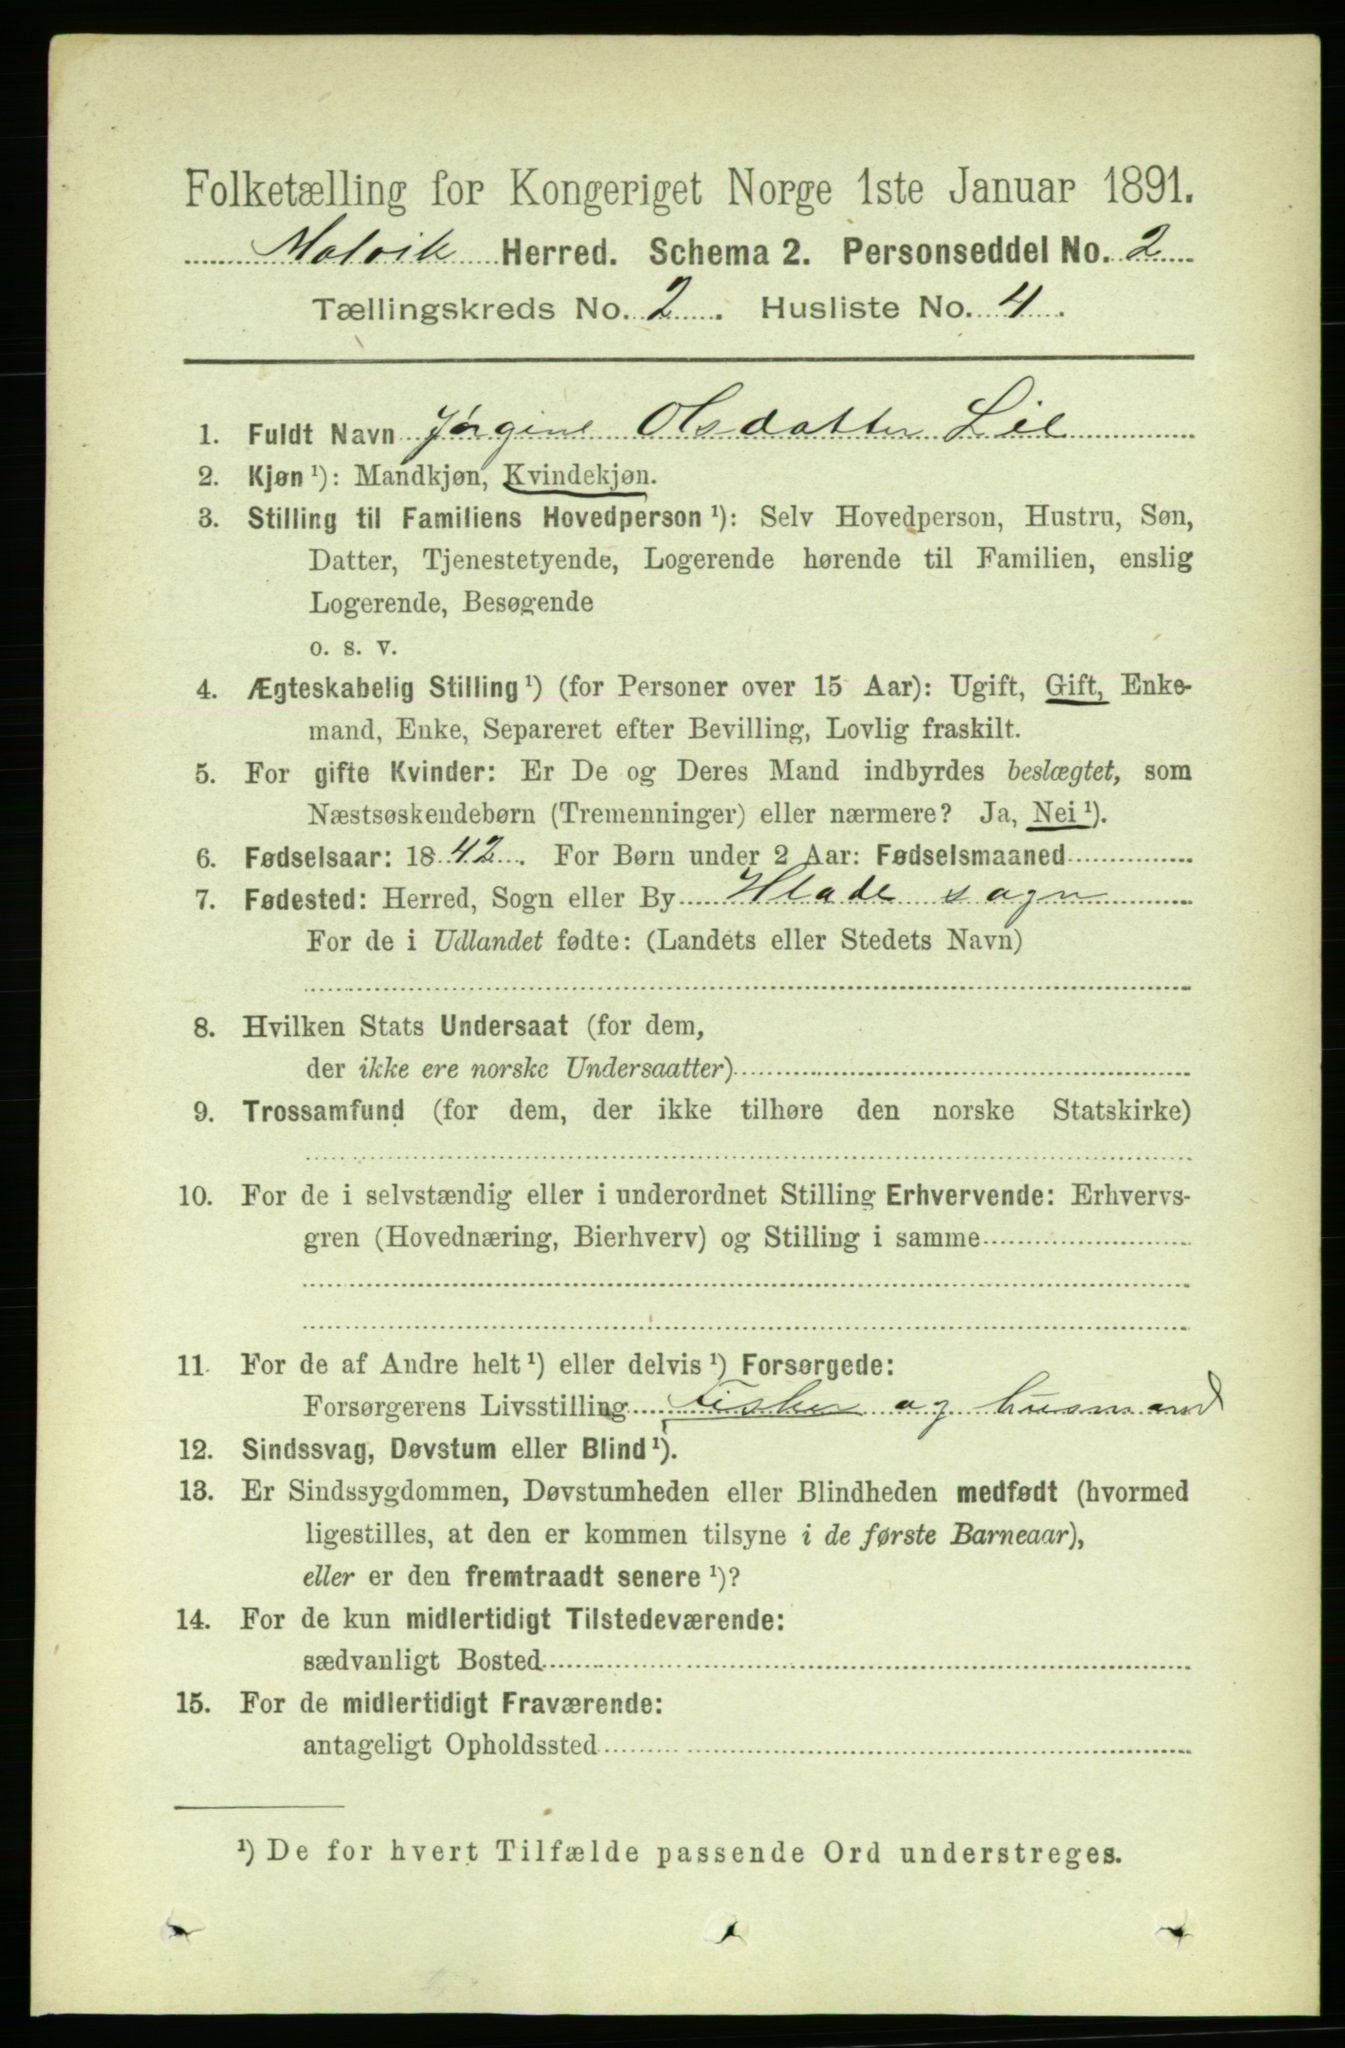 Folketælling for Kongeriget Norge 1ste Januar 1891.
Malvik Herred. Schema 2. Personseddel No. 2
Tællingskreds No. 2. Husliste No. 4.
1. Fuldt Navn Jørgine Olsdatter Lie
2. Kjøn ¹): Mandkjøn, Kvindekjøn.
3. Stilling til Familiens Hovedperson ¹): Selv Hovedperson, Hustru, Søn,
Datter, Tjenestetyende, Logerende hørende til Familien, enslig
Logerende, Besøgende
o. s. v.
4. Ægteskabelig Stilling ¹) (for Personer over 15 Aar): Ugift, Gift, Enke-
mand, Enke, Separeret efter Bevilling, Lovlig fraskilt.
5. For gifte Kvinder: Er De og Deres Mand indbyrdes beslægtet, som
Næstsøskendebørn (Tremenninger) eller nærmere? Ja, Nei ¹).
6. Fødselsaar: 1842. For Børn under 2 Aar: Fødselsmaaned
7. Fødested: Herred, Sogn eller By Hlade sogn
For de i Udlandet fødte: (Landets eller Stedets Navn)
8. Hvilken Stats Undersaat (for dem,
der ikke ere norske Undersaatter)
9. Trossamfund (for dem, der ikke tilhøre den norske Statskirke)
10. For de i selvstændig eller i underordnet Stilling Erhvervende: Erhvervs-
gren (Hovednæring, Bierhverv) og Stilling i samme
11. For de af Andre helt ¹) eller delvis ¹) Forsørgede:
Forsørgerens Livsstilling Fisker og husmand
12. Sindssvag, Døvstum eller Blind ¹).
13. Er Sindssygdommen, Døvstumheden eller Blindheden medfødt (hvormed
ligestilles, at den er kommen tilsyne i de første Barneaar),
eller er den fremtraadt senere ¹)?
14. For de kun midlertidigt Tilstedeværende:
sædvanligt Bosted
15. For de midlertidigt Fraværende:
antageligt Opholdssted
¹) De for hvert Tilfælde passende Ord understreges.